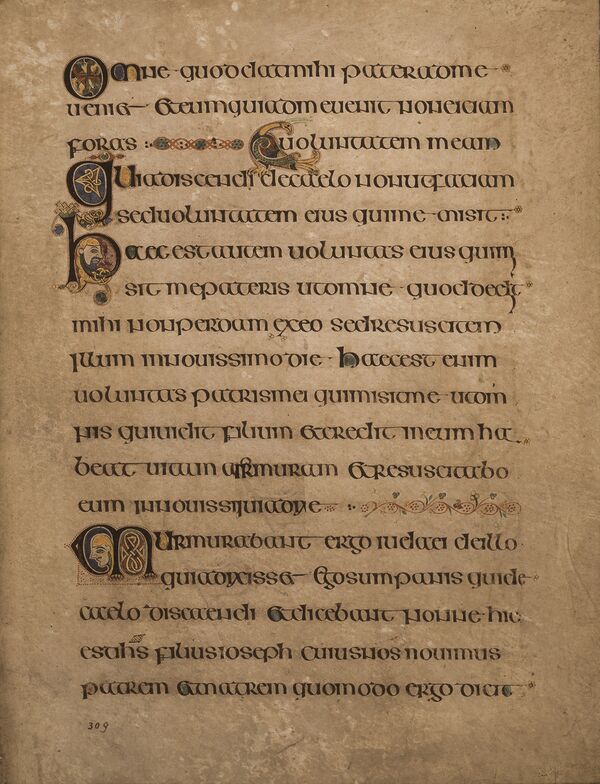 Omne quod dat mihi pater ad me
ueniet & eum qui ad me uenit non eiciam
foras uoluntatem meam
Quia discendi de caelo non ut faciam
sed uoluntatem eius qui me misit
Haec est autem uoluntas eius qui m
sit me pateris ut omne quod dedit
mihi non perdam ex eo sed resuscitem
illum in nouissimo die haec est enim
uoluntas patris mei qui misit me ut om
nis qui uidit filium & credit in eum ha
beat uitam & resuscitabo
eum in
Murmurabant ergo iudaei de illo
quia dixisset Ego sum panis qui de
caelo discendi & dicebant nonne hic
est ihs filius ioseph cuius nos nouimus
patrem & matrem quomodo ergo dicit
309